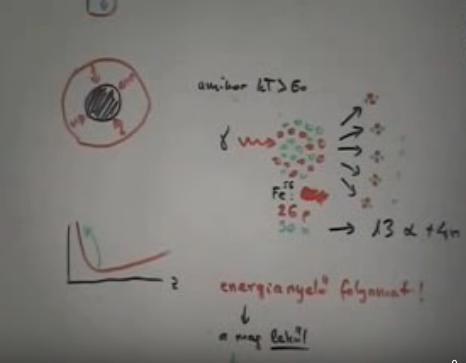 amikor kT > E₀
γ
Fe⁵⁶:
26 p
30 n → 13 α + 4n
z
energianyelő folyamat!
↓
a mag lehűl